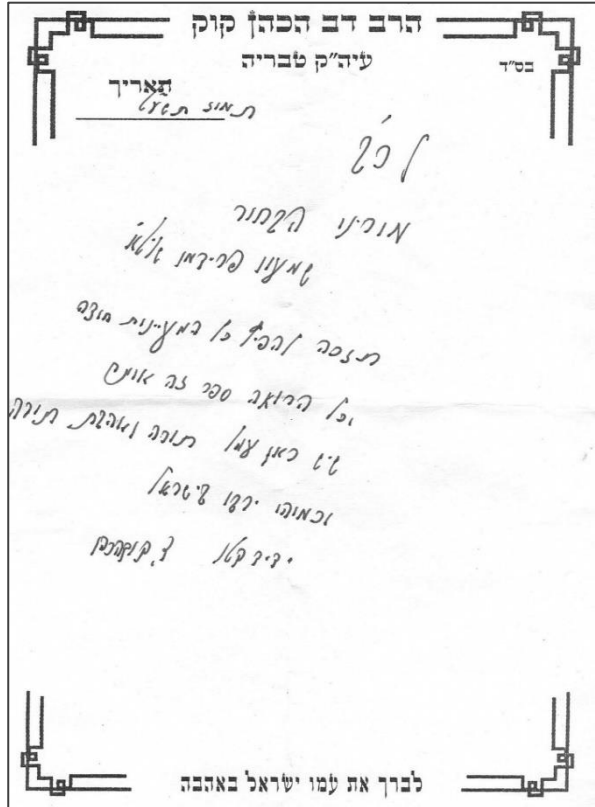 הרב דב הכהן קוק
עיה"ק טבריה
בס"ד
תאריך
תמוז תשע"ט
לכ'
מורינו הבחור
שמעון פרידמן
תזכה להפיץ כל המעיינות חוצה
וכל הרואה ספר זה
שיש כאן עמל תורה ואהבת תורה
וכמוהו ירבו בישראל
ידיד קטן
לברך את עמו ישראל באהבה